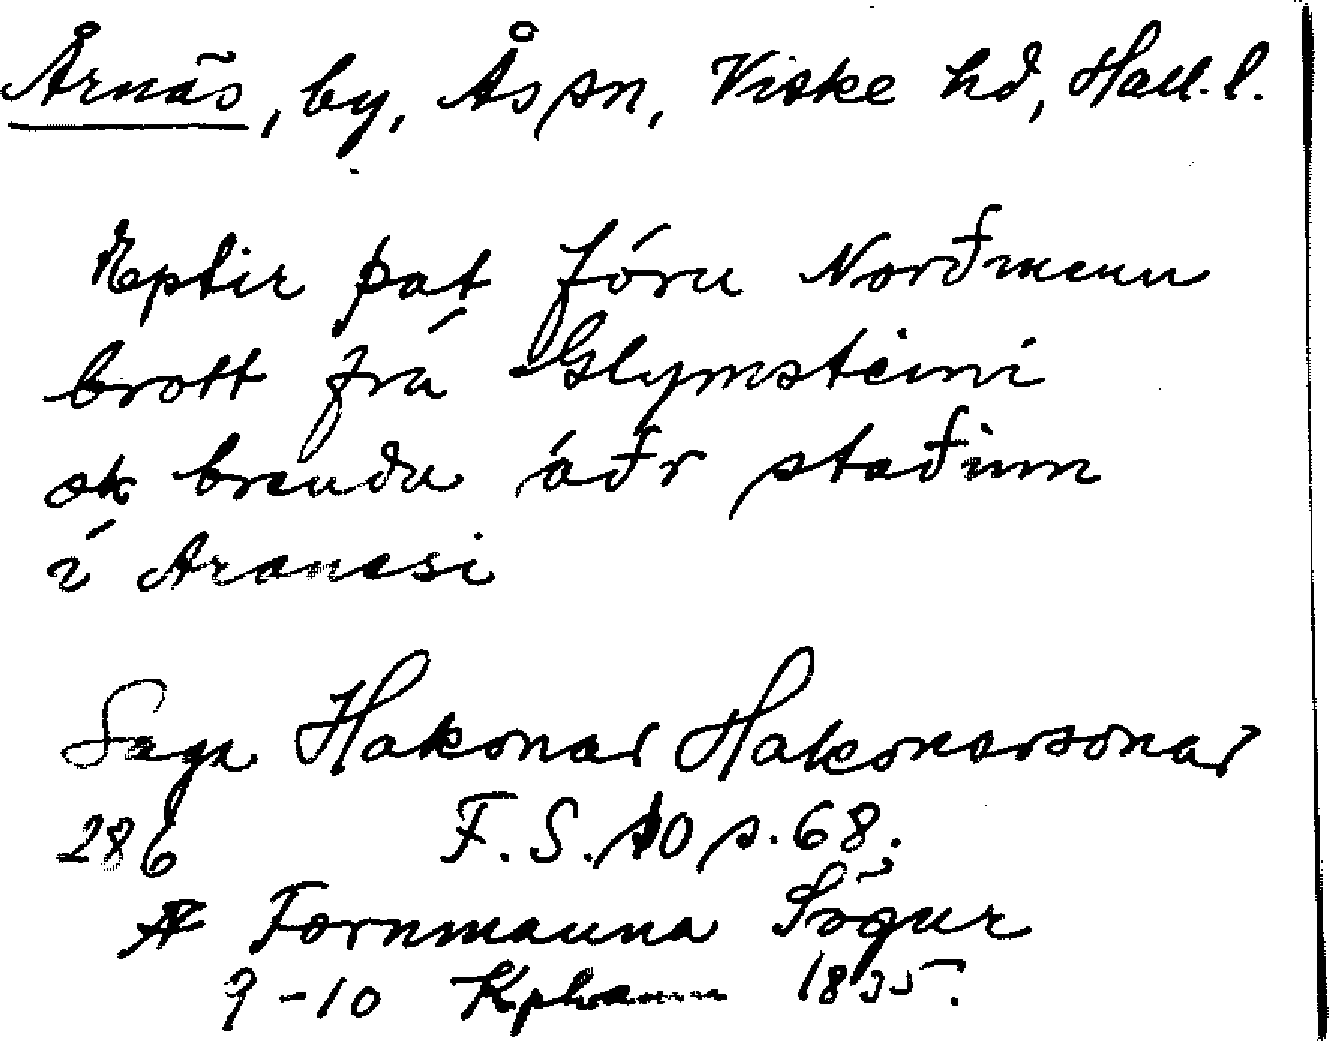 Årnäs, by, Ås sn, Viske hd, Hall. l.
Eptir þat fóru Norðmenn
brott frá Glymsteini
ok brendu áðr staðinn
í Aranesi
Saga Hakonar Hakonarsonar
286 F. S. 10 s. 68.
Fornmanna Sögur
9-10 Kphamn 1835.